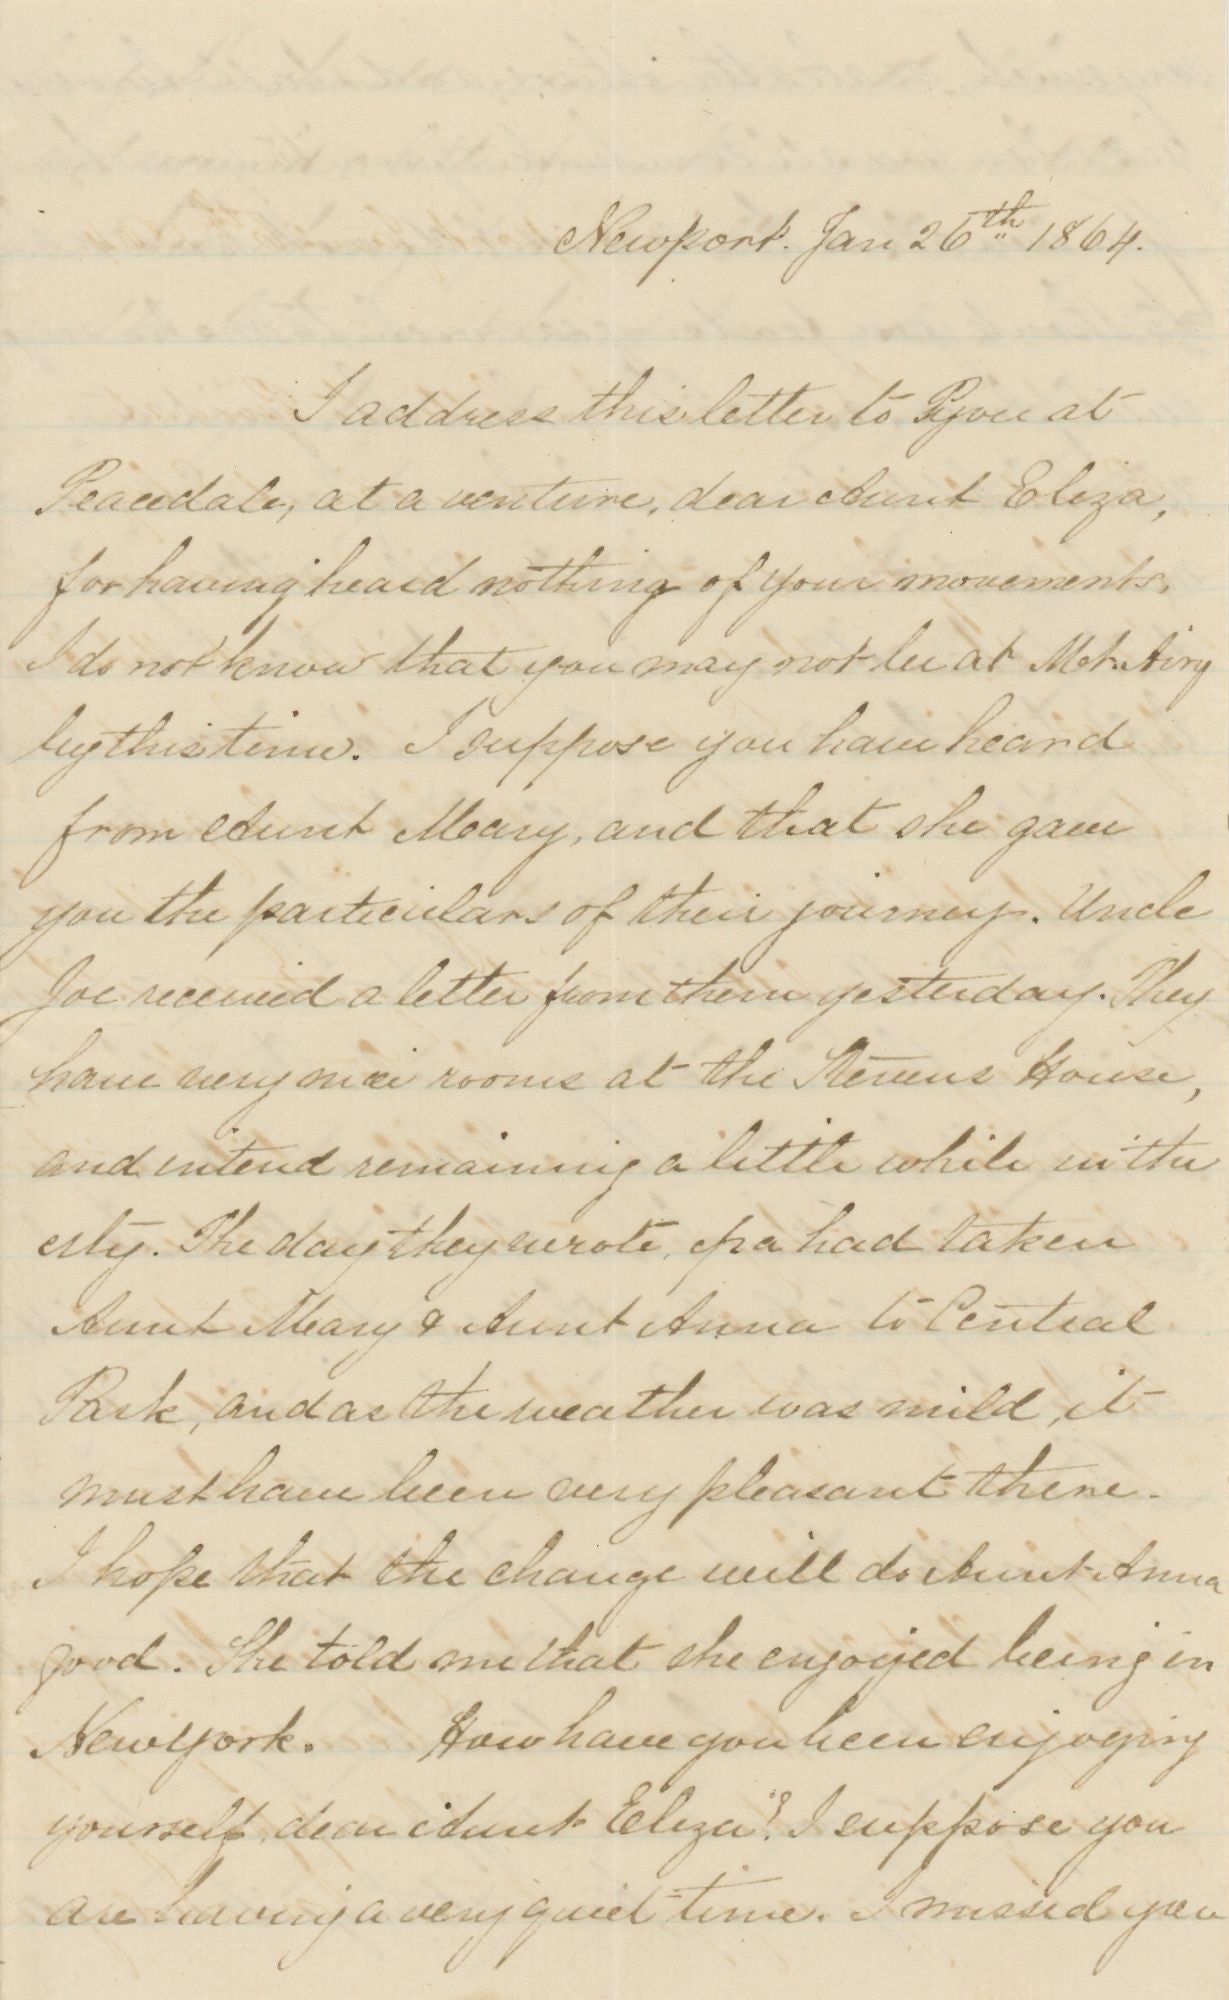 Newport. Jan 26th 1864.
I address this letter to you at
Peacedale, at a venture, dear Aunt Eliza,
for having heard nothing of your movements,
I do not know that you may not be at Mt. Airy
by this time. I suppose you have heard
from Aunt Mary, and that she gave
you the particulars of their journey. Uncle
Joe received a letter from them yesterday. They
have very nice rooms at the Stevens House,
and intend remaining a little while in the
city. The day they wrote, pa had taken
Aunt Mary & Aunt Anna to Central
Park, and as the weather was mild, it
must have been very pleasant there.
I hope that the change will do Aunt Anna
good. She told me that she enjoyed being in
New York. How have you been enjoying
yourself, dear Aunt Eliza? I suppose you
are having a very quiet time. I missed you